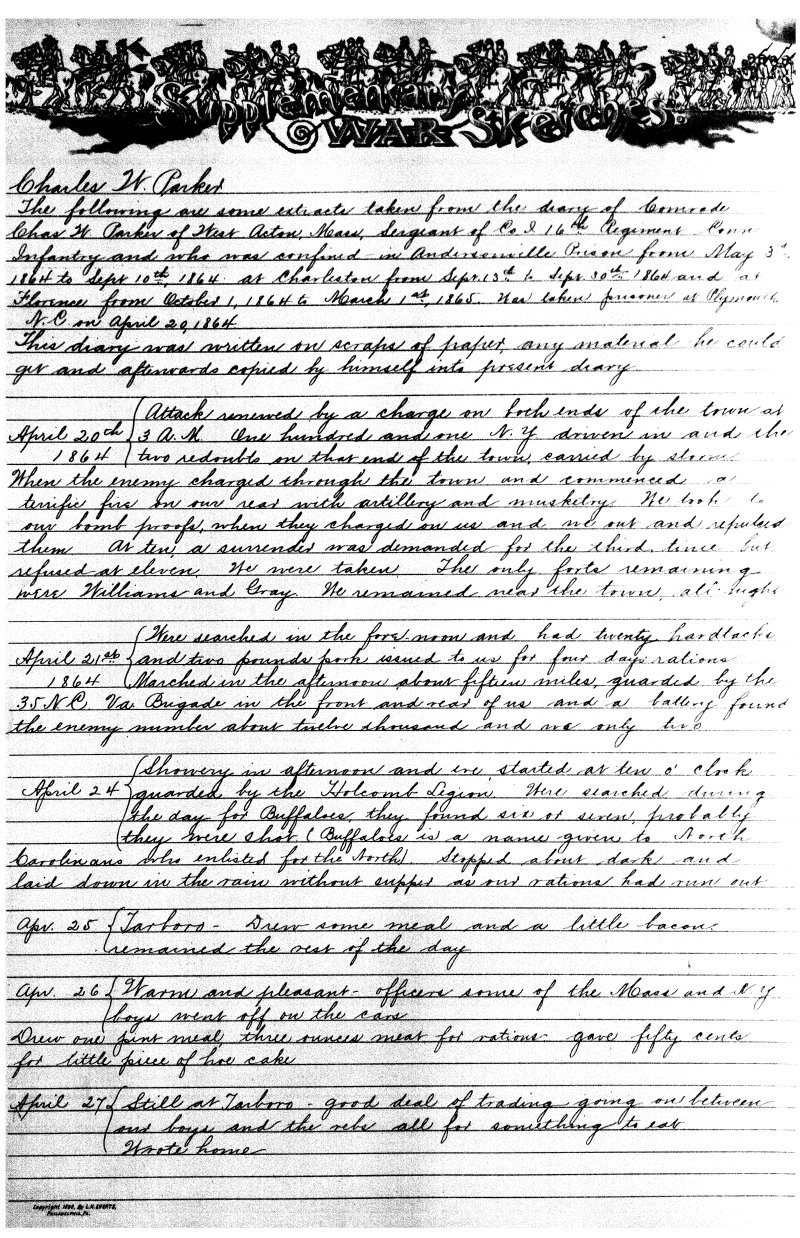 Supplementary
WAR Sketches.
Charles W. Parker
The following are some extracts taken from the diary of Comrade
Chas W. Parker of West Acton, Mass, Sergeant of Co. I 16th Regiment Conn
Infantry and who was confined in Andersonville Prison from May 3d
1864 to Sept 10th 1864. at Charleston from Sept. 13th to Sept. 30th 1864 and at
Florence from October 1, 1864 to March 1st, 1865. Was taken prisoner at Plymouth,
N.C. on April 20, 1864
This diary was written on scraps of paper, any material he could
get and afterwards copied by himself into present diary
Attack renewed by a charge on both ends of the town at
April 20th 3 A.M. One hundred and one N.Y. driven in and the
1864 two redoubts on that end of the town, carried by storm
When the enemy charged through the town and commenced a
terific fire on our rear with artillery and musketry. We took to
our bomb proofs, when they charged on us and we out and repulsed
them At ten, a surrender was demanded for the third, time but
refused at eleven. We were taken. The only forts remaining
were Williams and Gray. We remained near the town, all night
Were searched in the fore-noon and had twenty hardtacks
April 21st and two pounds pork issued to us for four days rations
1864 Marched in the afternoon about fifteen miles, guarded by the
35 N.C. Va. Brigade in the front and rear of us and a battery found
the enemy number about twelve thousand and we only two
Showery in afternoon and eve, started at ten o' clock
April 24 guarded by the Holcomb Legion. Were searched during
the day for Buffaloes, they found six or seven, probably
they were shot. (Buffaloes is a name given to North
Carolinians who enlisted for the North). Stopped about dark and
laid down in the rain without supper as our rations had run out
Apr. 25 Tarboro - Drew some meal and a little bacon.
remained the rest of the day
Apr. 26 Warm and pleasant - officers some of the Mass and N Y
boys went off on the cars
Drew one pint meal, three ounces meat for rations - gave fifty cents
for little piece of hoe cake
April 27 Still at Tarboro - good deal of trading going on between
our boys and the rebs all for something to eat
Wrote home
Copyright 1890, By L.H. EVERTS,
PHILADELPHIA, PA.